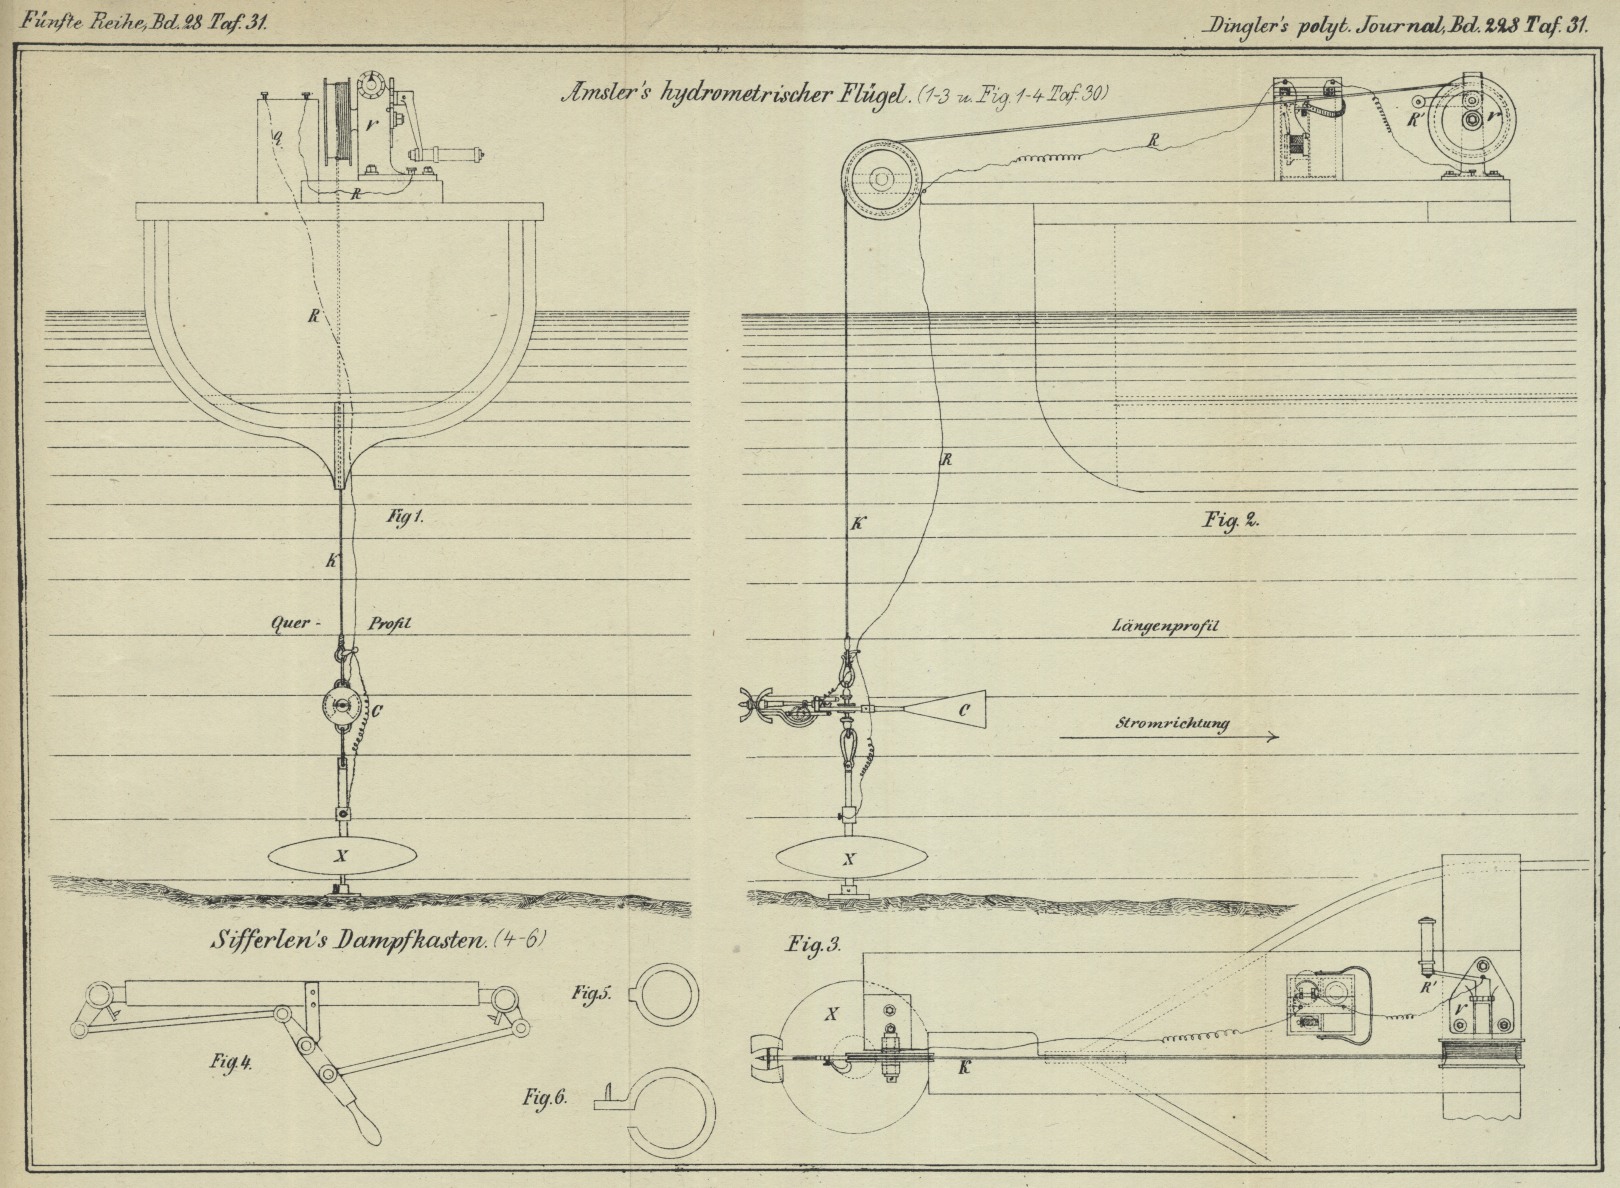 Fünfte Reihe, Bd. 28 Taf. 31.
Dingler's polyt. Journal, Bd. 228 Taf. 31.
Amsler's hydrometrischer Flügel. (1-3 u. Fig. 1-4 Taf. 30)
Q
V
R
R
R
R'
V
R
K
Fig 1.
K
R
Fig. 2.
Quer - Profil
Längenprofil
C
C
Stromrichtung
X
X
Sifferlen's Dampfkasten. (4-6)
Fig. 3.
Fig. 4.
Fig 5.
Fig. 6.
X
K
R'
V